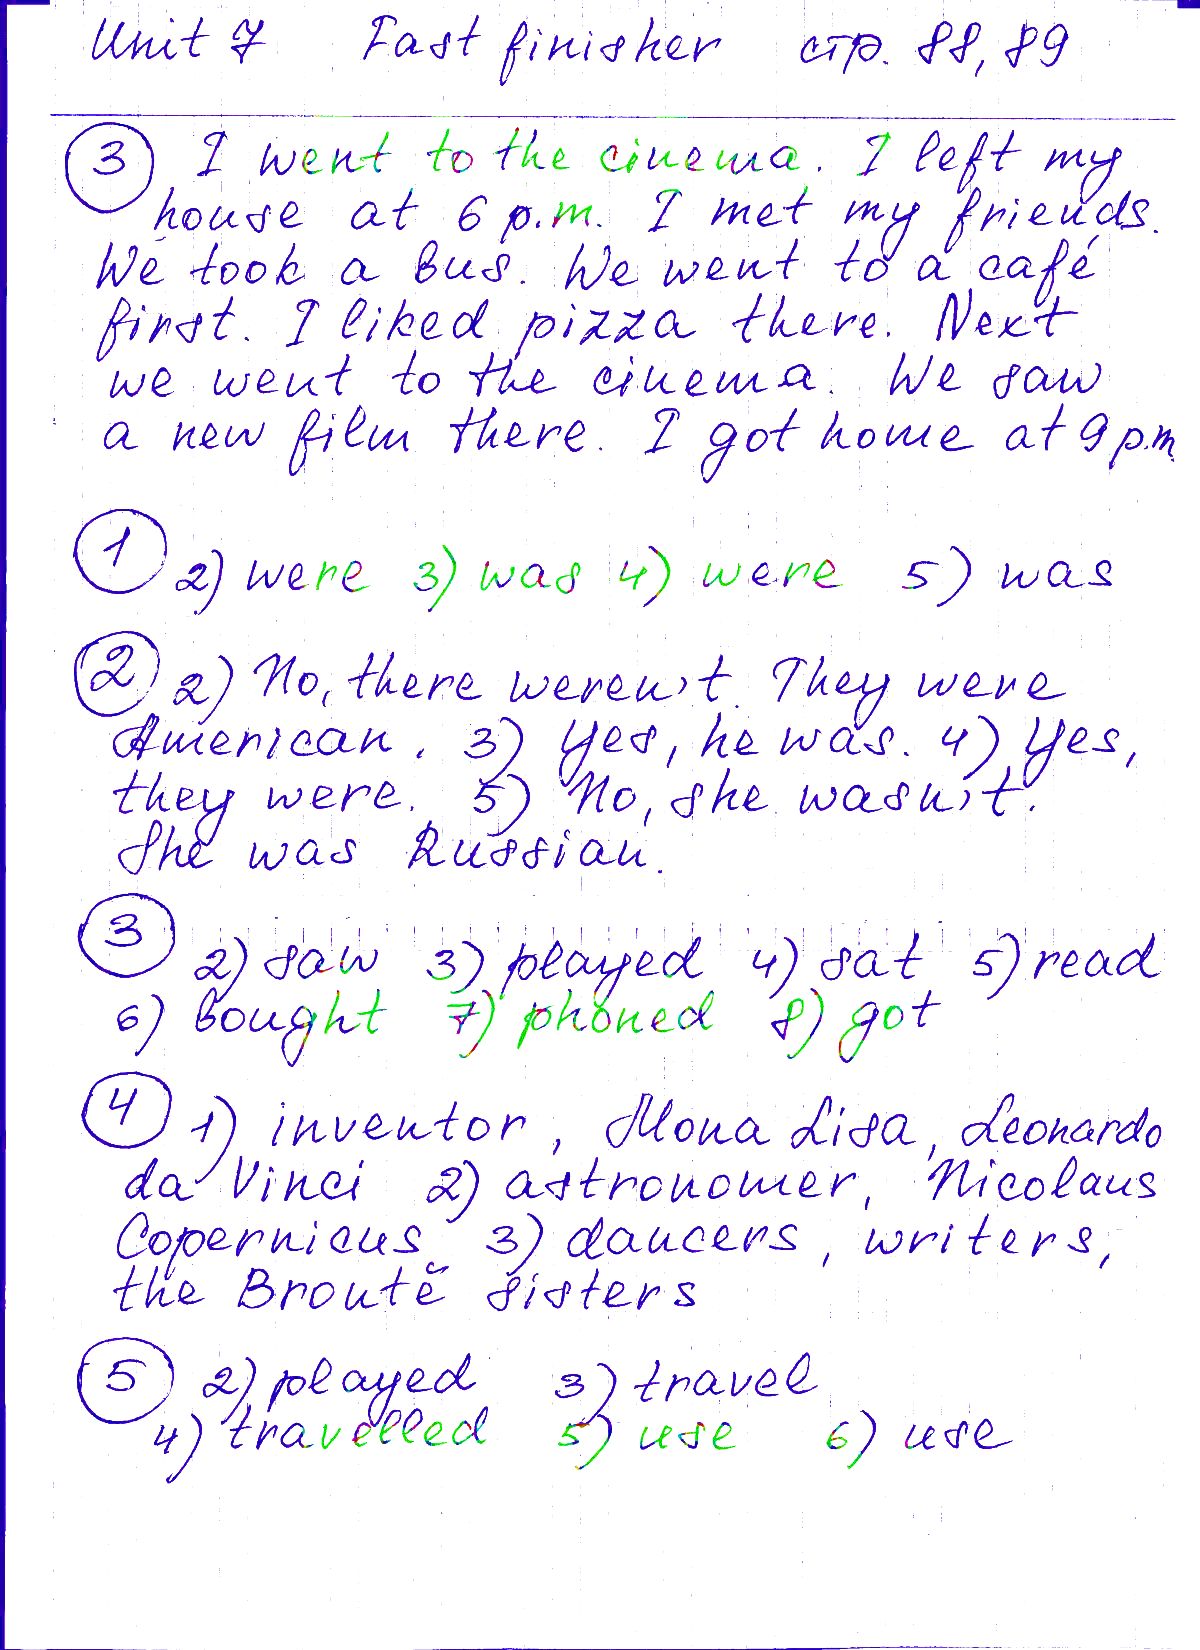 Unit 7 Fast finisher стр. 88, 89
3 I went to the cinema. I left my
house at 6 p.m. I met my friends.
We took a bus. We went to a café
first. I liked pizza there. Next
we went to the cinema. We saw
a new film there. I got home at 9 p.m.
1 2) were 3) was 4) were 5) was
2 2) No, there weren't. They were
American. 3) Yes, he was. 4) Yes,
they were. 5) No, she wasn't.
She was Russian.
3 2) saw 3) played 4) sat 5) read
6) bought 7) phoned 8) got
4 1) inventor, Mona Lisa, Leonardo
da Vinci 2) astronomer, Nicolaus
Copernicus 3) dancers, writers,
the Brontë sisters
5 2) played 3) travel
4) travelled 5) use 6) use